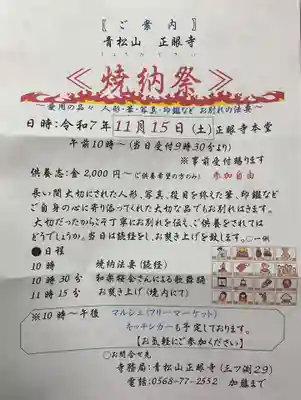 〖ご案内〗
青松山 正眼寺
≪焼納祭≫
～愛用の品々 人形・筆・写真・印鑑など お別れの法要～
日時:令和7年 11月15日(土)正眼寺本堂
午前10時~(当日受付9時30分より)
※事前受付賜ります
供養志:金2,000円~(ご供養希望の方のみ) 参加自由
長い間大切にされた人形、写真、役目を終えた筆、印鑑など
ご自身の心に寄り添ってくれた大切な品でもお別れはきます。
大切だったからこそ丁寧にお別れを伝え、ご供養をされては
どうでしょうか。当日は読経をし、お焚き上げを致します。○一例
●日程
10時 焼納法要(読経)
10時30分 和楽桜会さんによる歌舞踊
11時15分 お焚き上げ(境内にて)
※10時~午後 マルシェ(フリーマーケット)
キッチンカーも予定しております。
【お気軽にご参加ください】
○お問合せ先
寺務局:青松山正眼寺(三ツ渕29)
電話:0568-77-2552 加藤まで